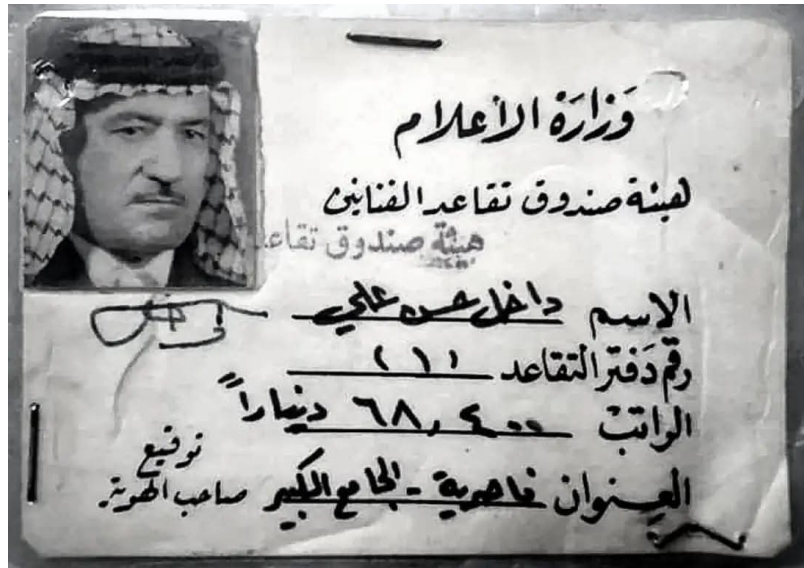 وَزارَة الأعلام
هيئة صندوق تقاعد الفنانين
هيئة صندوق تقاعد
الاسم داخل حسن علي
رقم دَفتر التقاعد (١)
الراتب ٦٨,٤٠٠ ديناراً
العنوان ناصرية - الجامع الكبير
توقيع
صاحب الهوية